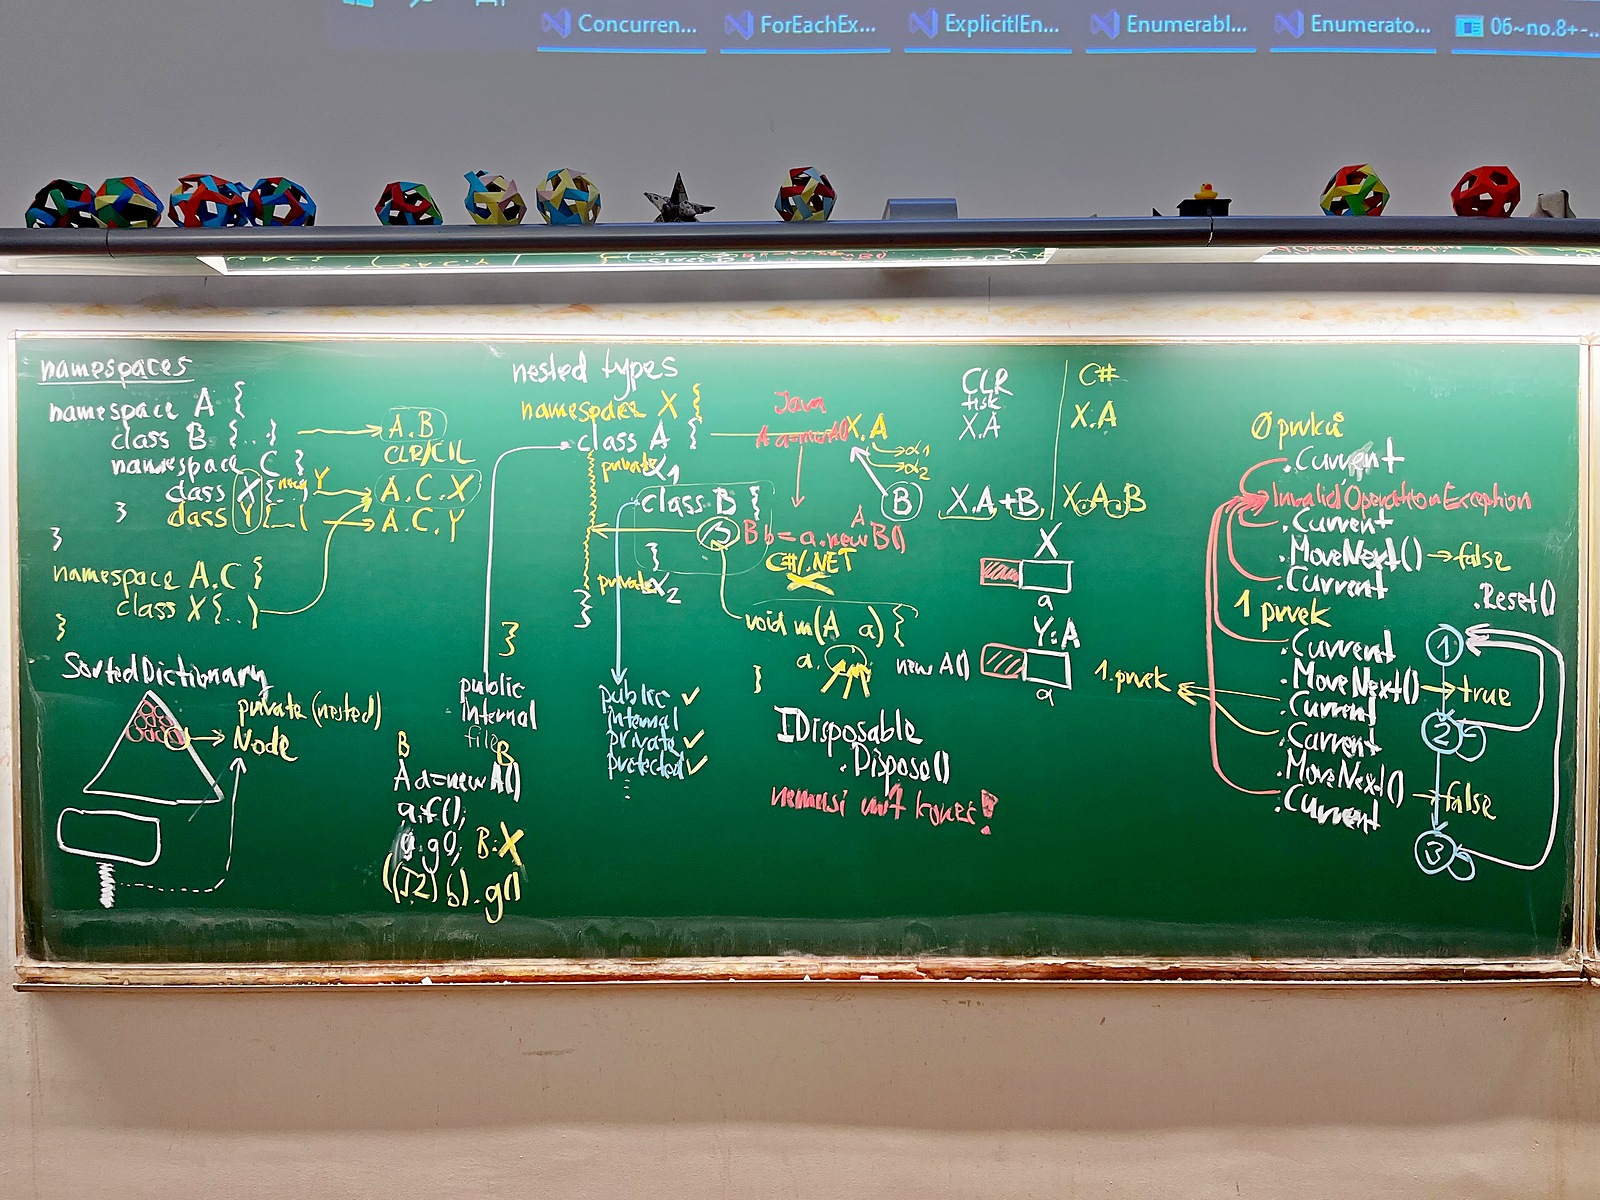 Concurren...
ForEachEx...
ExplicitlEn...
Enumerabl...
Enumerato...
06~no.8+-...
namespaces
namespace A {
class B {...}
A.B
CLR/CIL
namespace C {
class X {...}
Y
A.C.X
class Y {...}
A.C.Y
}
}
namespace A.C {
class X {...}
}
SortedDictionary
private (nested)
Node
nested types
namespace X {
class A {
X.A
private x1
class B {
}
private x2
}
}
public
internal
file
public ✓
internal
private ✓
protected ✓
⋮
B B
A a = new A()
a.f();
a.g(); B:X
((I2) b).g()
Java
A a = new A()
A
B b = a.new B()
C#/.NET
α1
α2
B
void m(A a) {
a.
}
new A()
IDisposable
.Dispose()
nemusí mít konec!
CLR
tisk
X.A
X.A+B
C#
X.A
X.A.B
X
a
Y:A
a
0 prvků
.Current
InvalidOperationException
.Current
.MoveNext() → false
.Current
1 prvek
.Current
.MoveNext() → true
1. prvek
.Current
.Current
.MoveNext() → false
.Current
.Reset()
1
2
3